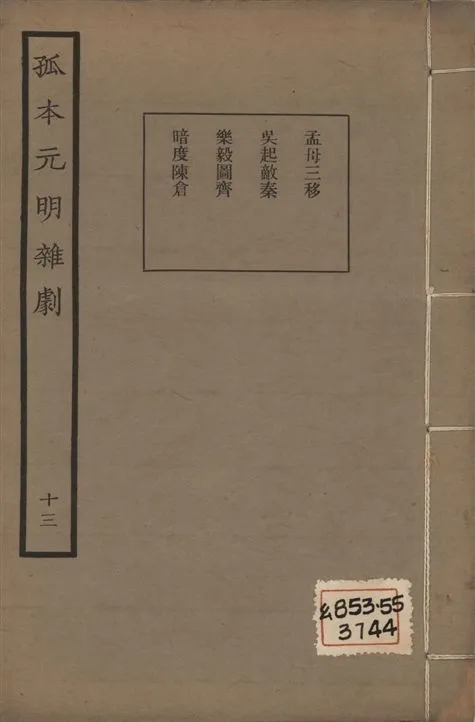 孤本元明雜劇
十三
孟母三移
吳起敵秦
樂毅圖齊
暗度陳倉
853.55
3744